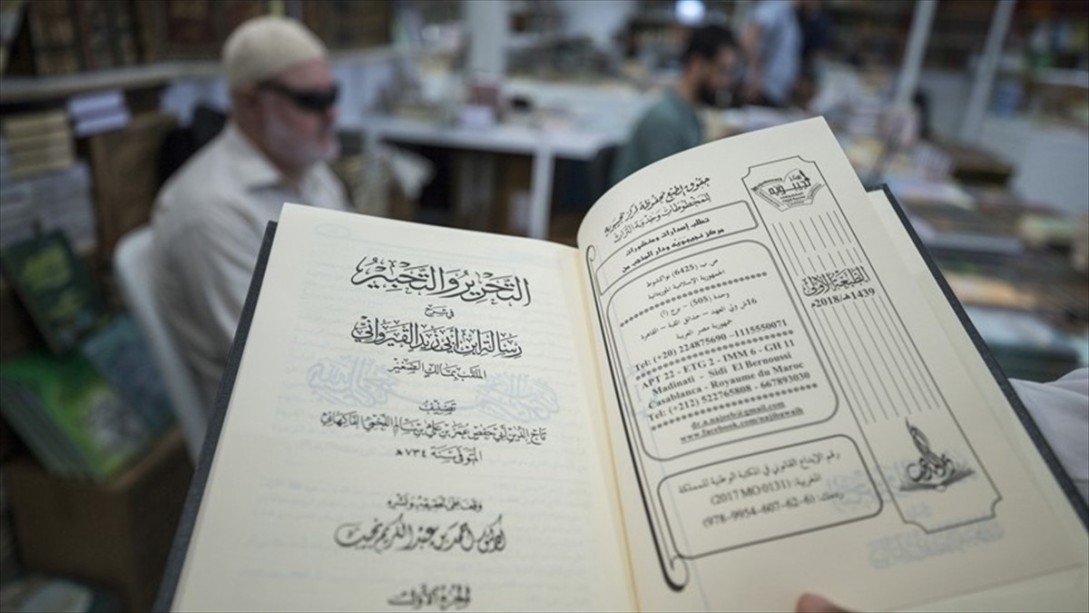 حقوق الطبع محفوظة لمركز نجيبويه
للمخطوطات وخدمة التراث
تطلب إصدارات ومنشورات
مركز نجيبويه ودار المذهب من
ص ب (6425) نواكشوط
الجمهورية الإسلامية الموريتانية
وحدة (505) - مرج (أ)
16ش ولي العهد - حدائق القبة - القاهرة
جمهورية مصر العربية
Tel: (+20) 224875690 -1115550071
APT 22 - ETG 2 - IMM 6 - GH 11
Madinati - Sidi El Bernoussi
Casablanca - Royaume du Maroc
Tel: (+212) 522765808 - 667893030
dr.a.najeeb@gmail.com
www.facebook.com/najibawaih
رقم الإيداع القانوني في المكتبة الوطنية للمملكة
المغربية: (2017 MO 0131)
ردمك: (978-9954-607-62-6)
الطبعة الأولى
1439هـ/2018م
التحرير والتحبير
في شرح
رسالة ابن أبي زيد القيرواني
الملقب بمالك الصغير
تصنيف
تاج الدين أبي حفص عمر بن علي بن سالم اللخمي الفاكهاني
المتوفى سنة ٧٣٤ هـ
وقف على تحقيقه ونشره
الدكتور أحمد بن عبد الكريم نجيب
الجزء الأول